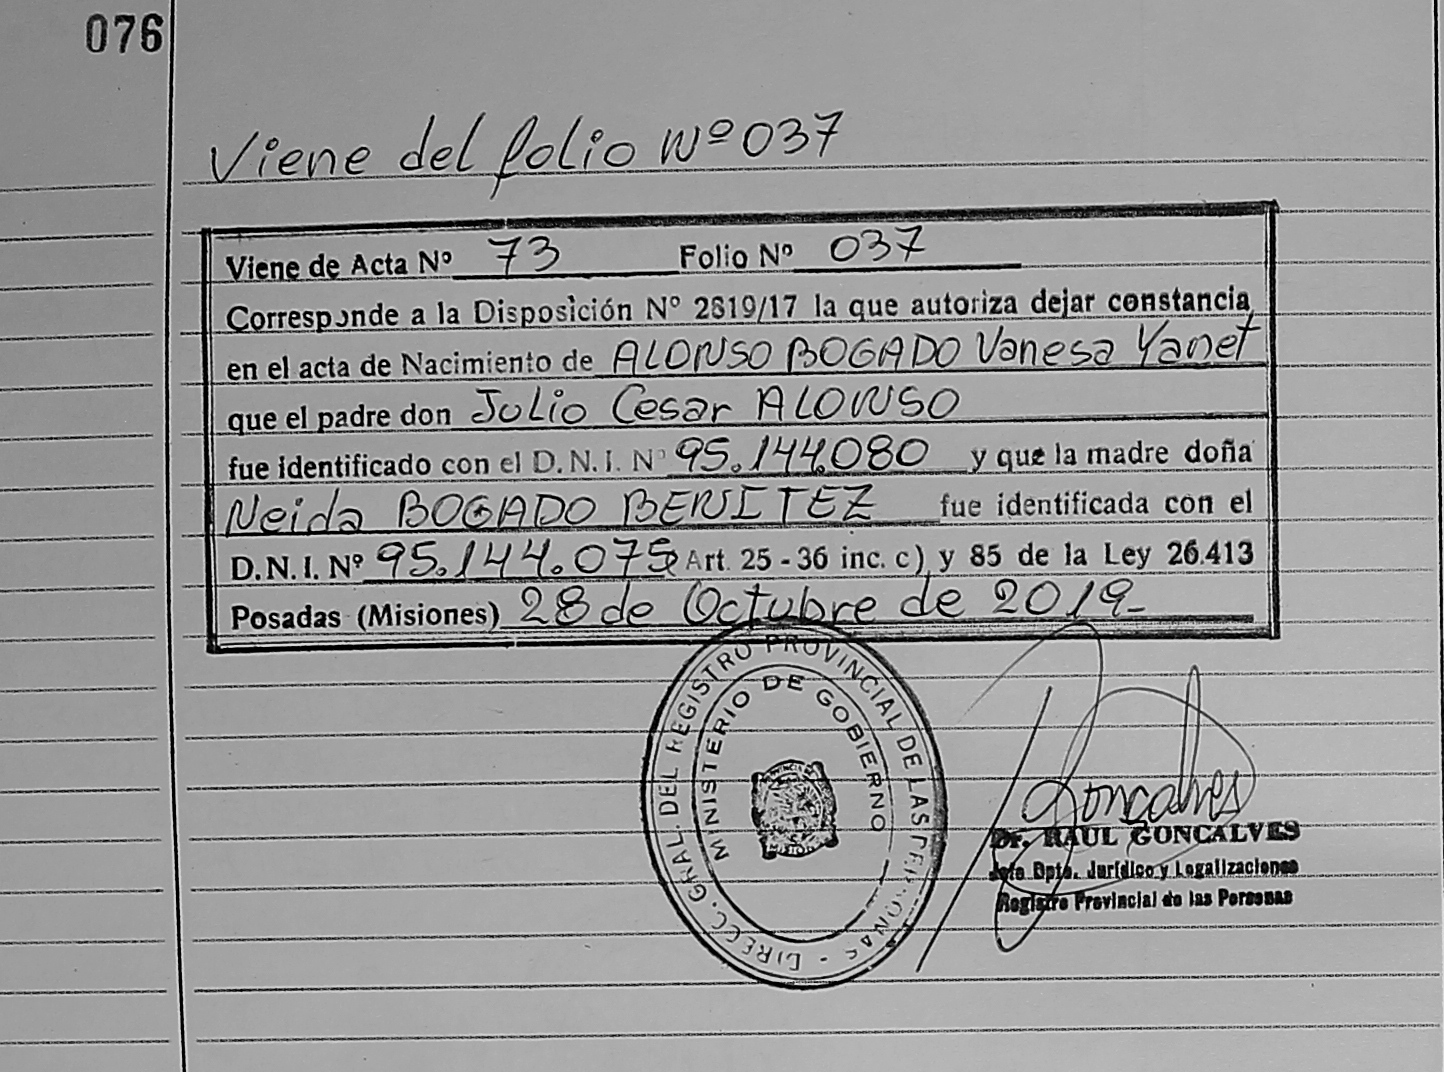 076
Viene del folio Nº 037
Viene de Acta Nº 73 Folio Nº 037
Corresponde a la Disposición Nº 2819/17 la que autoriza dejar constancia
en el acta de Nacimiento de ALONSO BOGADO Vanesa Yanet
que el padre don Julio Cesar ALONSO
fue identificado con el D.N.I. Nº 95.144.080 y que la madre doña
Neida BOGADO BENITEZ fue identificada con el
D.N.I. Nº 95.144.075 Art. 25 - 36 inc. c) y 85 de la Ley 26.413
Posadas (Misiones) 28 de Octubre de 2019-
DIRECC. GRAL. DEL REGISTRO PROVINCIAL DE LAS PERSONAS -
MINISTERIO DE GOBIERNO
Goncalves
Dr. RAUL GONCALVES
Jefe Dpto. Jurídico y Legalizaciones
Registro Provincial de las Personas